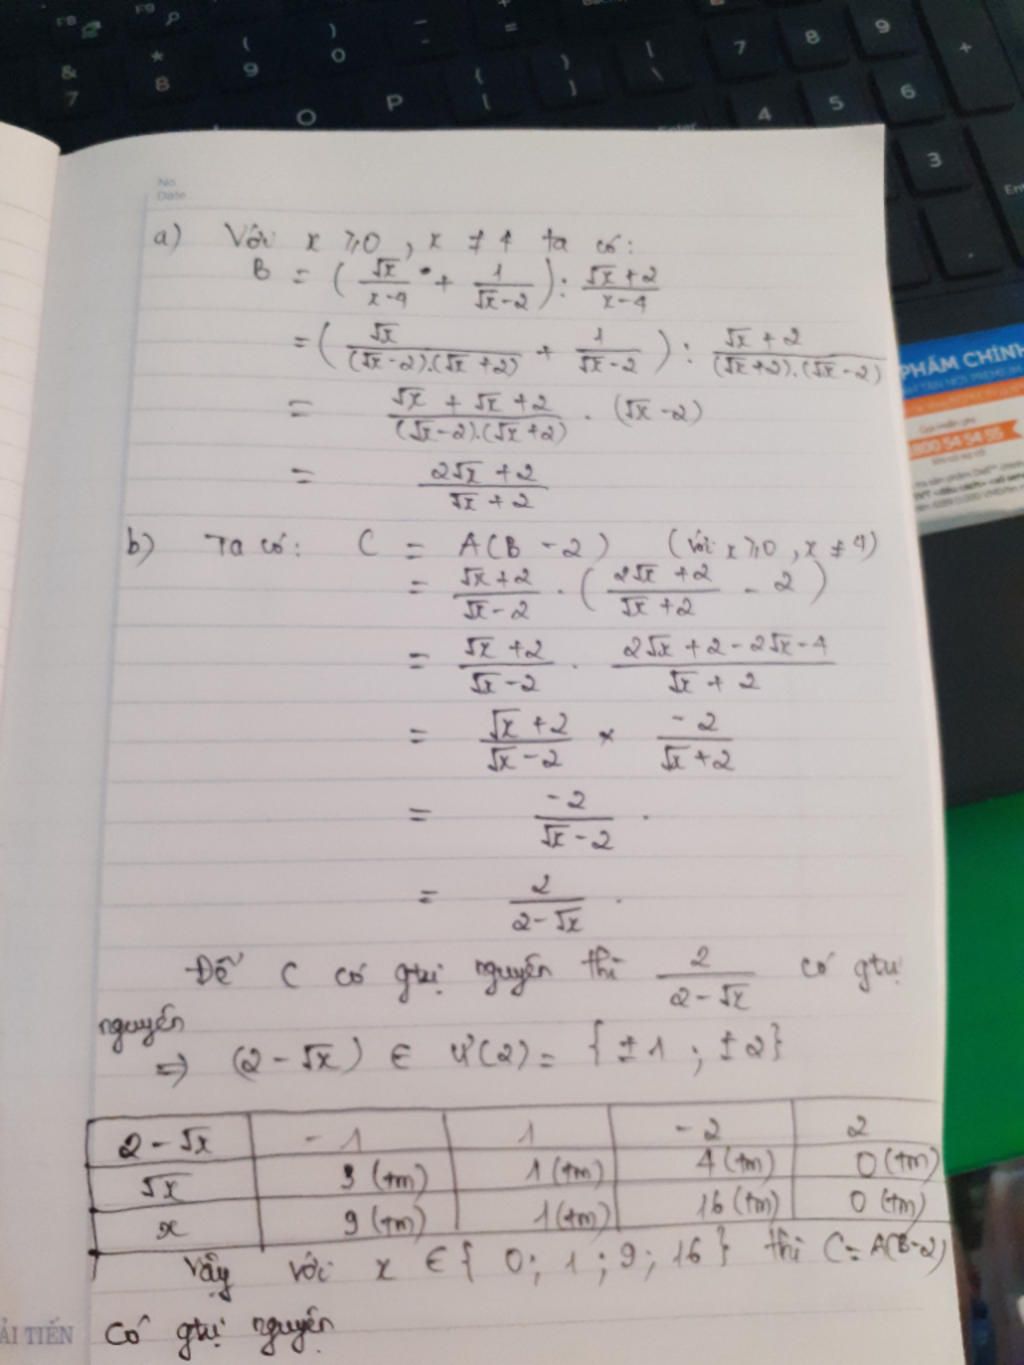 F8
F9
& 7
* 8
( 9
) 0
O
P
{ [
} ]
| \
7
8
9
+
4
5
6
3
No.
Date
a) Với x ⩾ 0 , x ≠ 4 ta có:
B = ( √x / (x-4) + 1 / (√x-2) ) : (√x+2) / (x-4)
= ( √x / ((√x-2).(√x+2)) + 1 / (√x-2) ) : (√x+2) / ((√x+2).(√x-2))
= (√x + √x + 2) / ((√x-2).(√x+2)) . (√x-2)
= (2√x + 2) / (√x + 2)
b) Ta có: C = A(B-2) (với x ⩾ 0 , x ≠ 4)
= (√x+2) / (√x-2) . ( (2√x+2) / (√x+2) - 2 )
= (√x+2) / (√x-2) . (2√x+2-2√x-4) / (√x+2)
= (√x+2) / (√x-2) × -2 / (√x+2)
= -2 / (√x-2) .
= 2 / (2-√x) .
Để C có gtrị nguyên thì 2 / (2-√x) có gtrị
nguyên
⇒ (2-√x) ∈ Ư(2) = {±1 ; ±2}
2-√x -1 1 -2 2
√x 3 (tm) 1 (tm) 4 (tm) 0 (tm)
x 9 (tm) 1 (tm) 16 (tm) 0 (tm)
Vậy với x ∈ { 0; 1; 9; 16 } thì C = A(B-2)
có gtrị nguyên
ẢI TIẾN
PHẨM CHÍNH
1800 54 54 55